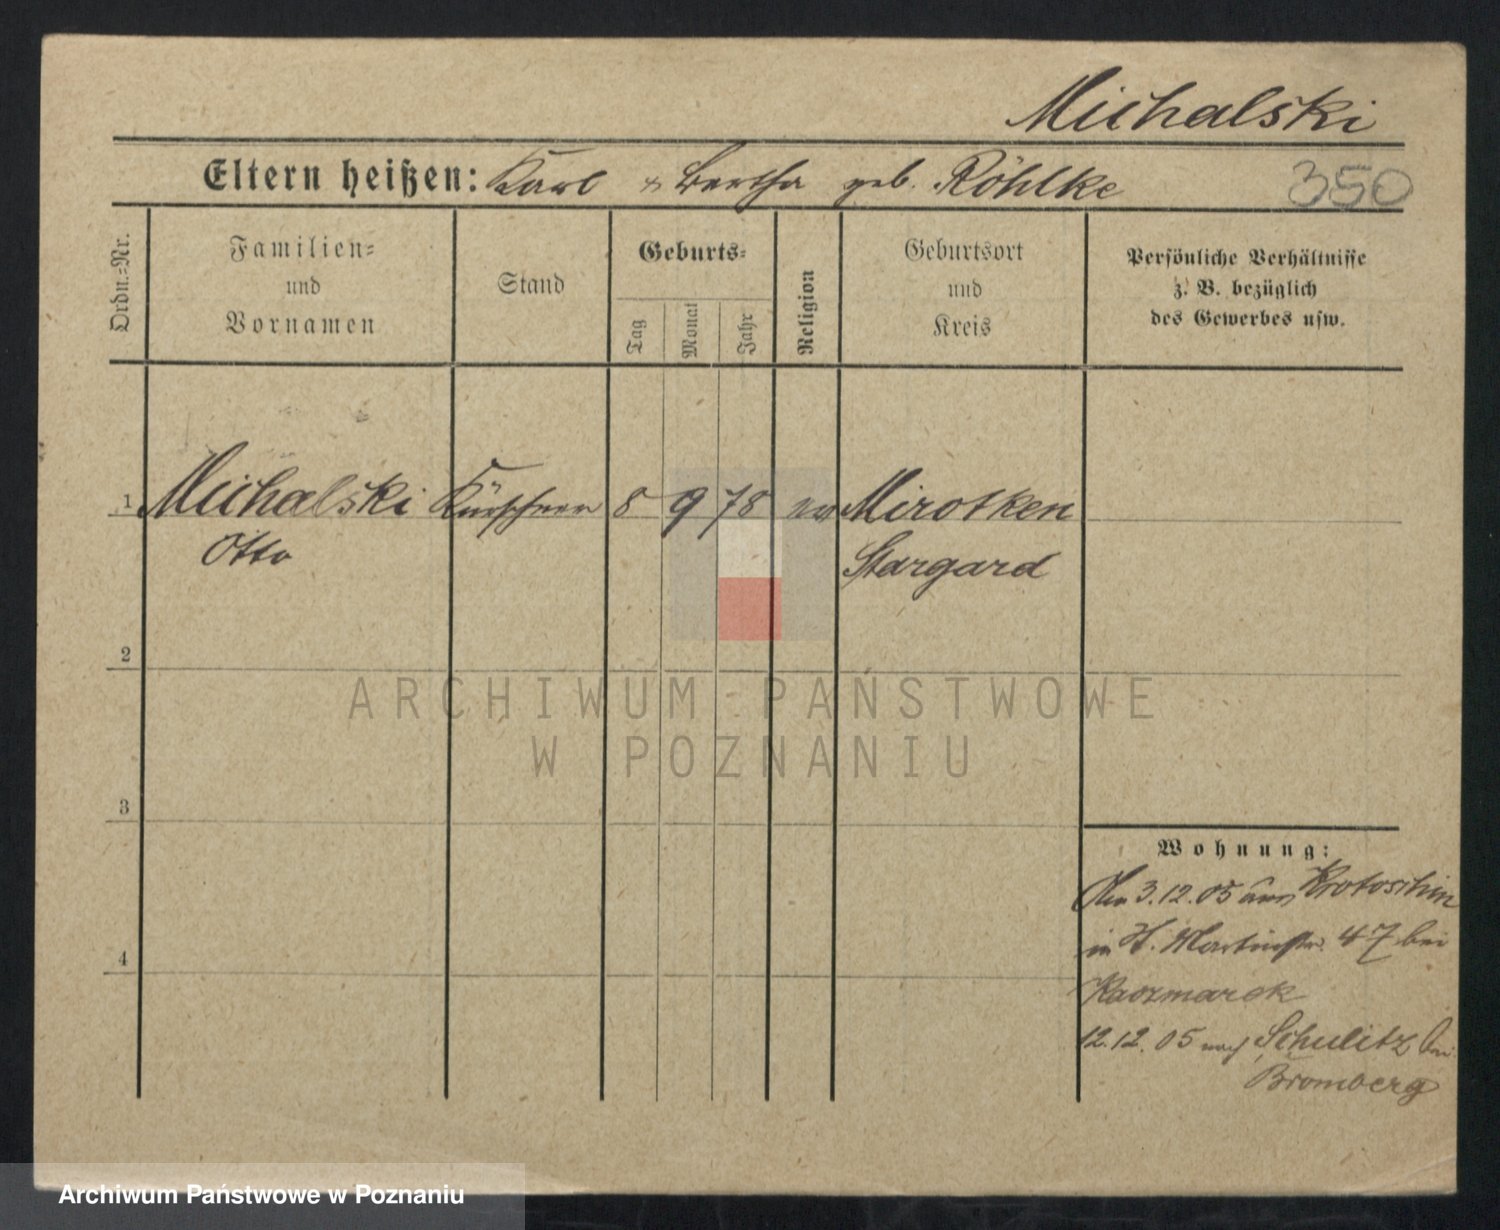 Michalski
Eltern heißen: Karl & Bertha geb. Röhlke 350
Ordn.=Nr.
Familien=
und
Vornamen
Stand
Geburts=
Tag
Monat
Jahr
Religion
Geburtsort
und
Kreis
Persönliche Verhältnisse
z. B. bezüglich
des Gewerbes usw.
1 Michalski Kürschner 8 9 78 ev Mirotken
Otto Stargard
2
ARCHIWUM PAŃSTWOWE
W POZNANIU
3
4
Wohnung:
3.12.05 aus Krotoschin
in St. Martinstr. 47 bei
Kaczmarek
12.12.05 nach Schulitz Kr.
Bromberg
Archiwum Państwowe w Poznaniu